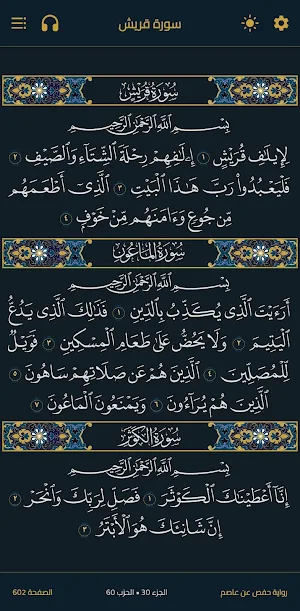 سورة قريش
سُورَةُ قُرَيْشٍ
بِسْمِ ٱللَّهِ ٱلرَّحْمَٰنِ ٱلرَّحِيمِ
لِإِيلَٰفِ قُرَيْشٍ ١ إِۦلَٰفِهِمْ رِحْلَةَ ٱلشِّتَآءِ وَٱلصَّيْفِ ٢
فَلْيَعْبُدُوا۟ رَبَّ هَٰذَا ٱلْبَيْتِ ٣ ٱلَّذِىٓ أَطْعَمَهُم
مِّن جُوعٍ وَءَامَنَهُم مِّنْ خَوْفٍۭ ٤
سُورَةُ المَاعُونِ
بِسْمِ ٱللَّهِ ٱلرَّحْمَٰنِ ٱلرَّحِيمِ
أَرَءَيْتَ ٱلَّذِى يُكَذِّبُ بِٱلدِّينِ ١ فَذَٰلِكَ ٱلَّذِى يَدُعُّ
ٱلْيَتِيمَ ٢ وَلَا يَحُضُّ عَلَىٰ طَعَامِ ٱلْمِسْكِينِ ٣ فَوَيْلٌ
لِّلْمُصَلِّينَ ٤ ٱلَّذِينَ هُمْ عَن صَلَاتِهِمْ سَاهُونَ ٥
ٱلَّذِينَ هُمْ يُرَآءُونَ ٦ وَيَمْنَعُونَ ٱلْمَاعُونَ ٧
سُورَةُ الكَوْثَرِ
بِسْمِ ٱللَّهِ ٱلرَّحْمَٰنِ ٱلرَّحِيمِ
إِنَّآ أَعْطَيْنَٰكَ ٱلْكَوْثَرَ ١ فَصَلِّ لِرَبِّكَ وَٱنْحَرْ ٢
إِنَّ شَانِئَكَ هُوَ ٱلْأَبْتَرُ ٣
رواية حفص عن عاصم الجزء 30 • الحزب 60 الصفحة 602